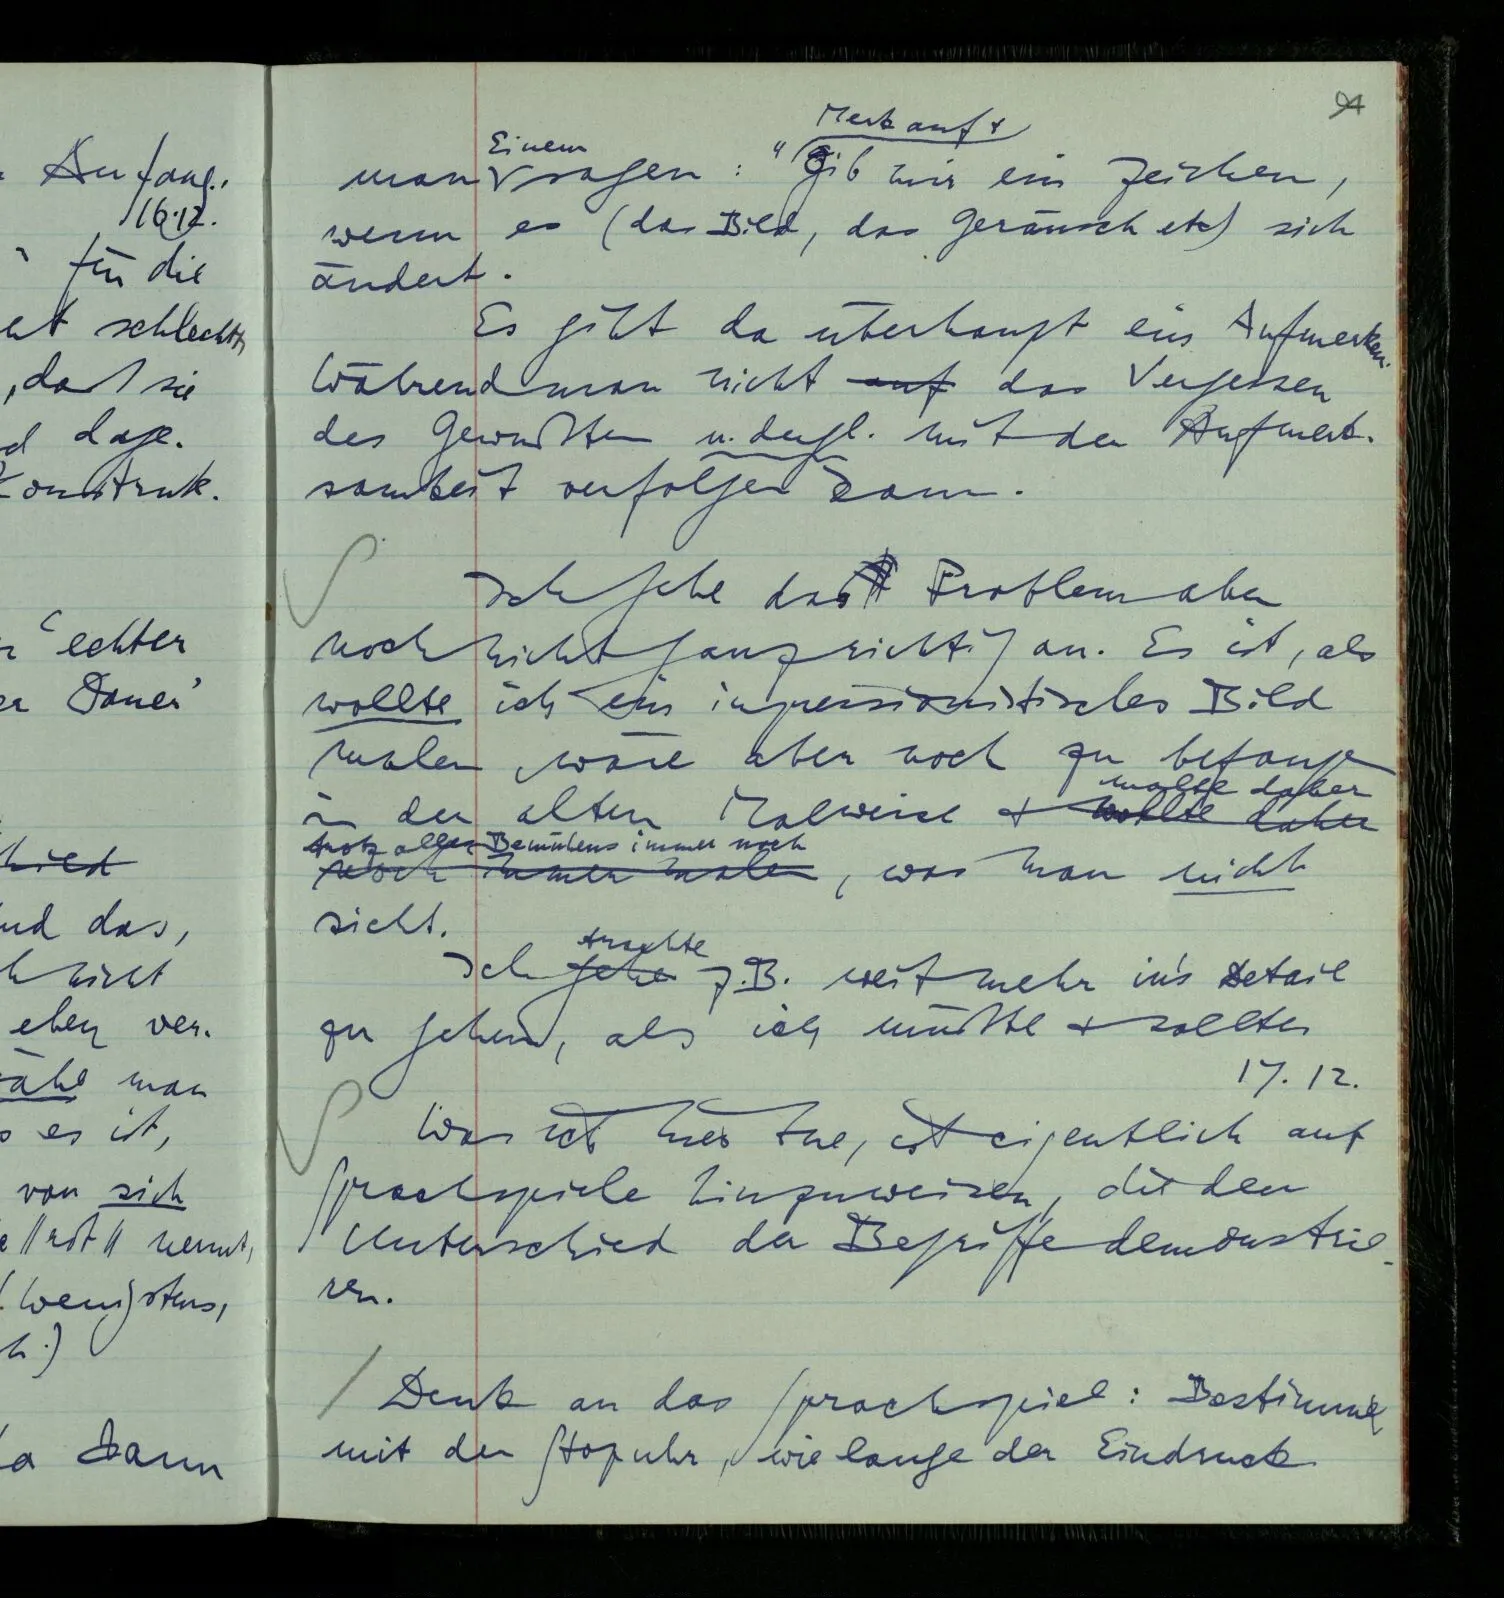 Anfang.
16.12.
für die
schlechte
, daß sie
dage.
Konstruk.
echter
Dauer'
hied
und das,
nicht
eben ver-
sähe man
es ist,
von sich
"rot" nennt,
wenigstens,
h.)
da kann
94
Merk auf &
Einem
man sagen: "Gib mir ein Zeichen,
wenn es (das Bild, das Geräusch etc) sich
ändert.
Es gibt da überhaupt ein Aufmerken.
Während man nicht auf das Vergessen
des Gewußten u. dergl. mit der Aufmerk-
samkeit verfolgen kann.
Ich sehe das Problem aber
noch nicht ganz richtig an. Es ist, als
wollte ich ein impressionistisches Bild
malen, wäre aber noch zu befangen
malte daher
in der alten Malweise & wollte daher
trotz allen Bemühens immer noch
noch immer malen, was man nicht
sieht.
trachte
Ich gehe z.B. weit mehr in's Detail
zu gehen, als ich müßte & sollte.
17.12.
Was ich hier tue, ist eigentlich auf
Sprachspiele hinzuweisen, die den
Unterschied der Begriffe demonstrie-
ren.
Denk an das Sprachspiel: Bestimme
mit der Stopuhr, wie lange der Eindruck